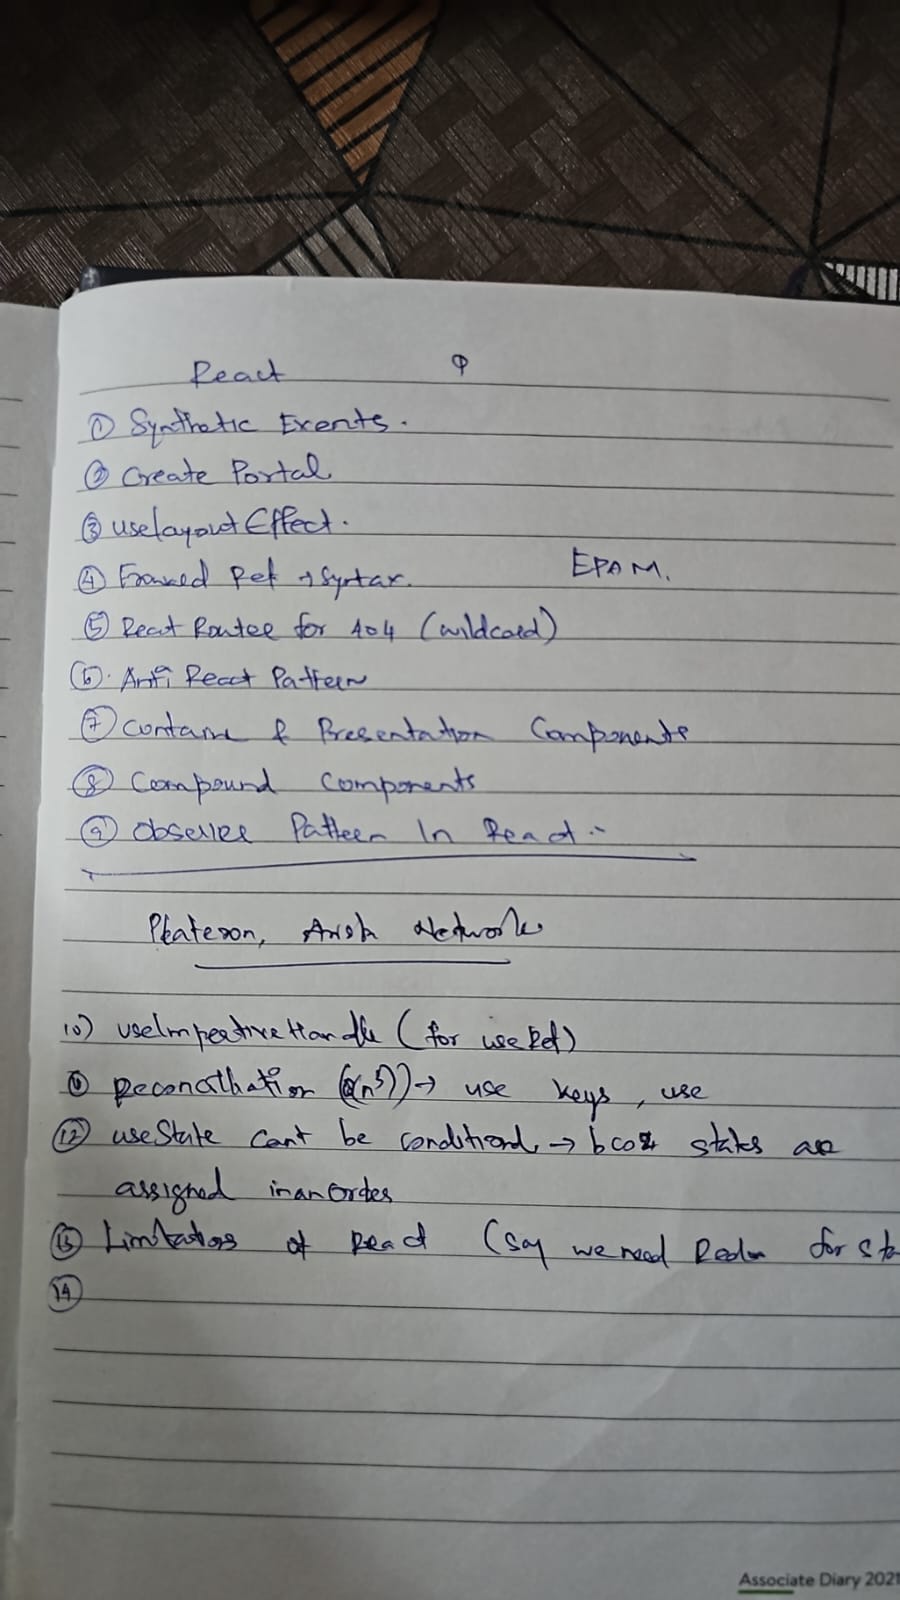 React
① Synthetic Events.
② Create Portal
③ uselayout Effect.
④ Forward Ref → Syntax.
EPAM.
⑤ React Router for 404 (wildcard)
⑥. Anti React Pattern
⑦ Container & Presentation Components
⑧ Compound Components
⑨ Observer Pattern In React :-
Arsh Network
10) useImperativeHandle (for useRef)
Reconcilhation (O(n³)) → use keys, use
⑫ useState can't be conditional → bcoz states are
assigned in an order
⑬ Limitations of React (say we need Redux for sta
⑭
Associate Diary 2021